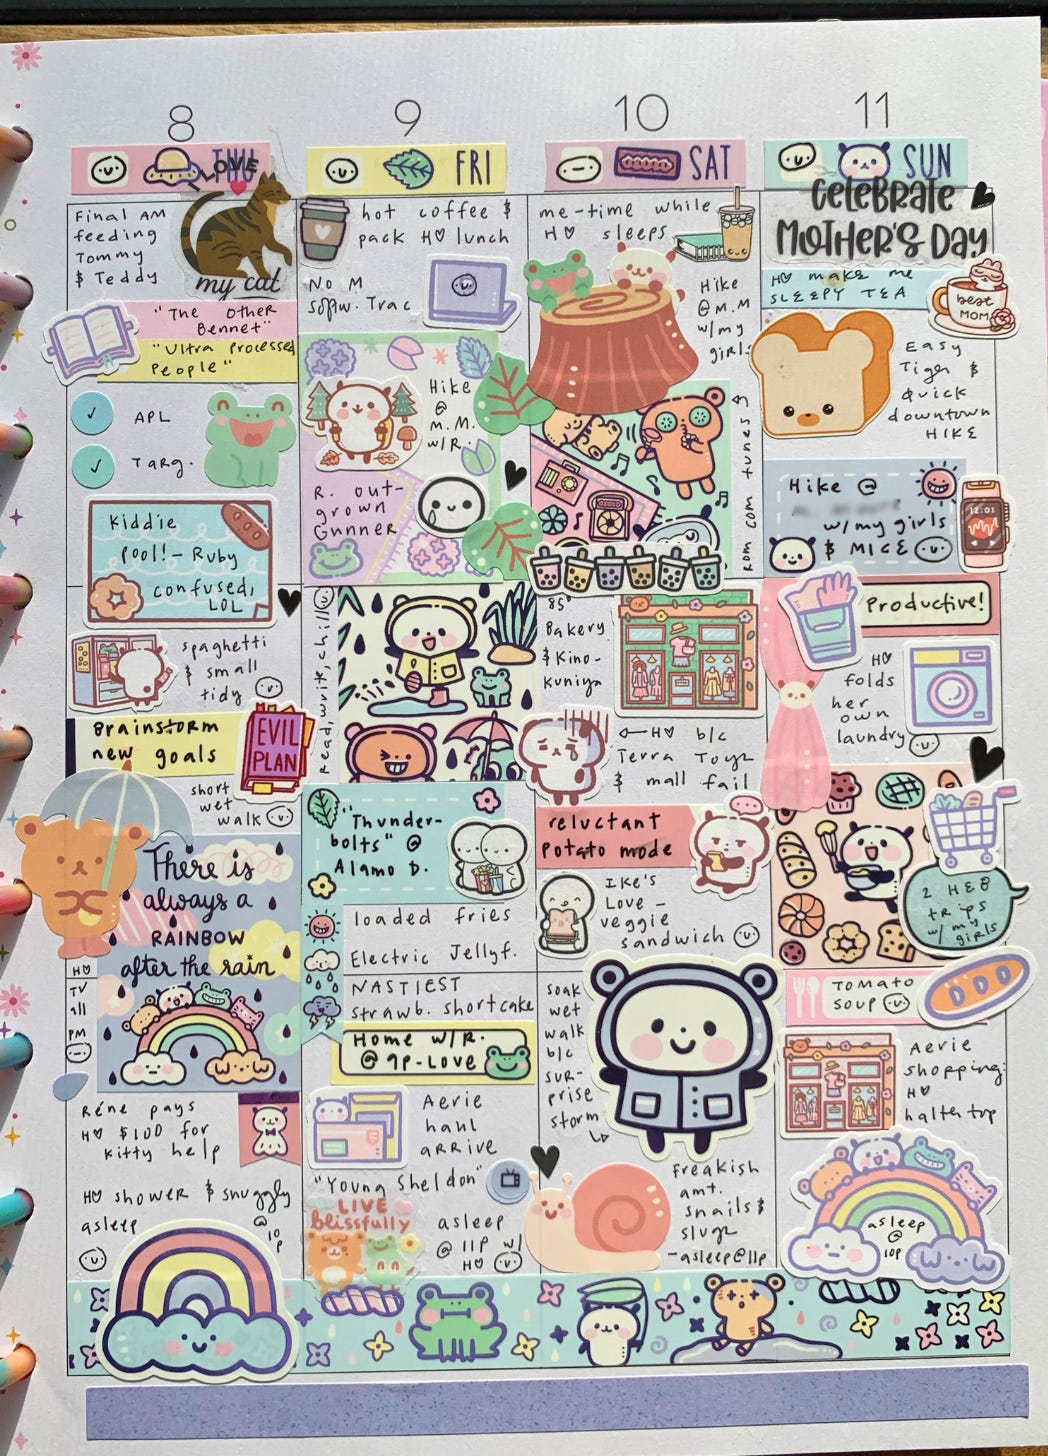 8
9
10
11
THU
FRI
SAT
SUN
Final AM
feeding
Tommy
& Teddy
LOVE
my cat
"The Other
Bennet"
"Ultra Processed
People"
APL
Targ.
Kiddie
pool! - Ruby
confused,
LOL
spaghetti
& small
tidy
Brainstorm
new goals
EVIL
PLAN
short
wet
walk
There is
always a
RAINBOW
after the rain
H♥
TV
all
PM
Réne pays
H♥ $100 for
kitty help
H♥ shower & snuggly
asleep
@
10p
hot coffee &
pack H♥ lunch
No M
softw. Trac
Hike
@
M.M.
w/R.
R. out-
grown
Gunner
read, write, chill
"Thunder-
bolts" @
Alamo D.
loaded fries
Electric Jellyf.
NASTIEST
strawb. shortcake
Home w/R.
@ 9p-Love
Aerie
haul
arrive
"Young Sheldon"
LIVE
blissfully
asleep
@ 11p w/
H♥
me-time while
H♥ sleeps
Hike
@ M.M
w/my
girls
rom com tunes
85°
Bakery
& Kino-
kuniya
←H♥ b/c
Terra Toys
& mall fail
reluctant
potato mode
Ike's
Love -
veggie
sandwich
soak
wet
walk
b/c
sur-
prise
storm
freakish
amt.
snails &
slugs
-asleep@11p
CELEBRATE
MOTHER'S DAY
H♥ make me
SLEEPY TEA
best
MOM
Easy
Tiger &
quick
downtown
HIKE
Hike @
w/my girls
& MICE
12:01
Productive!
H♥
folds
her
own
laundry
2 HEB
trips
w/my
girls
TOMATO
SOUP
Aerie
shopping:
H♥
halter top
asleep
@
10p